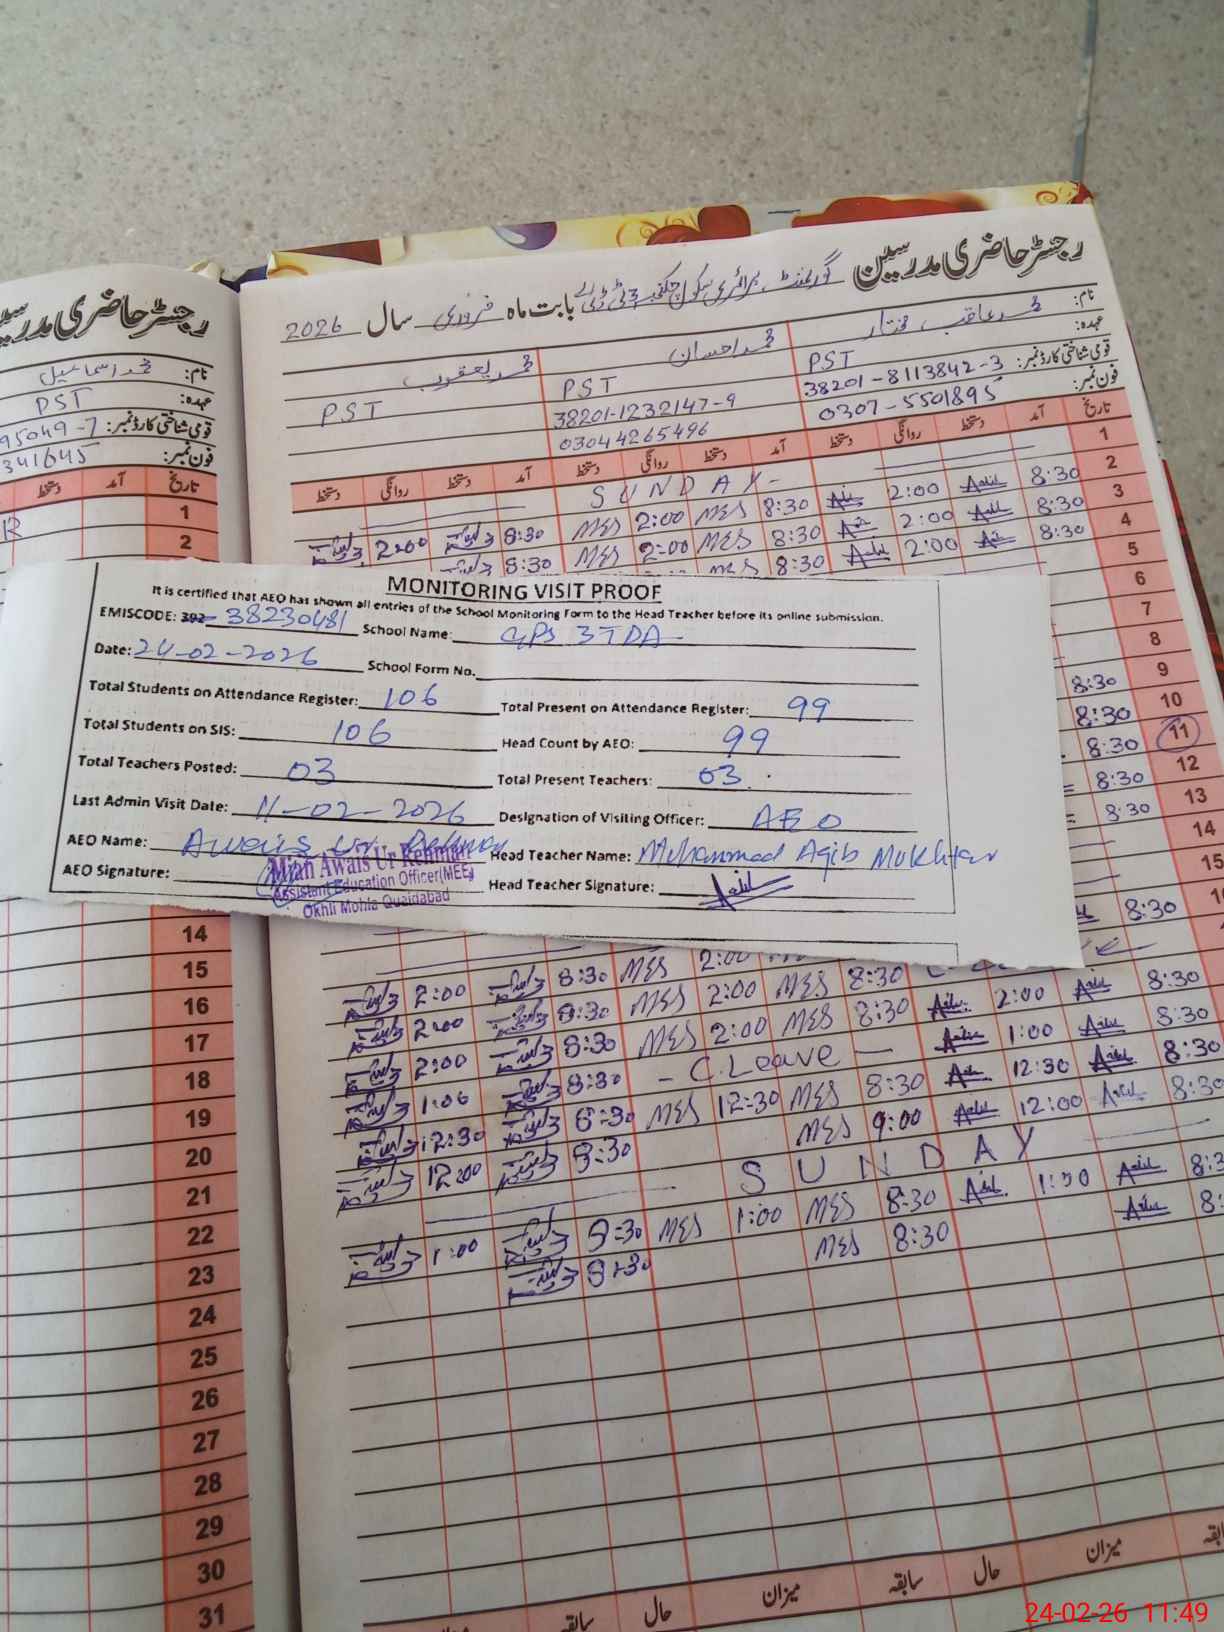 رجسٹر حاضری مدرسین گورنمنٹ پرائمری سکول چک نمبر 3 ٹی ڈی اے بابت ماہ فروری سال 2026
نام: محمد عاقب مختار محمد احسان محمد یعقوب
عہدہ: PST PST PST
قومی شناختی کارڈ نمبر: 38201-8113842-3 38201-1232147-9
فون نمبر: 0307-5501895 03044265496
تاریخ آمد دستخط روانگی دستخط آمد دستخط روانگی دستخط آمد دستخط روانگی دستخط
1 SUNDAY-
2 8:30 2:00 8:30 MES 2:00 MES 8:30 2:00
3 8:30 2:00 8:30 MES 2:00 MES 8:30
4 8:30 2:00 8:30 MES
5
6
7
8
9 8:30
10 8:30
11 8:30
12 8:30
13 8:30
14
15
8:30
رجسٹر حاضری مدرسین
نام: محمد اسماعیل
عہدہ: PST
قومی شناختی کارڈ نمبر: 95049-7
فون نمبر: 341645
تاریخ آمد دستخط
1
2
MONITORING VISIT PROOF
It is certified that AEO has shown all entries of the School Monitoring Form to the Head Teacher before its online submission.
EMISCODE: 392 38230481 School Name: GPS 3TDA
Date: 24-02-2026 School Form No.
Total Students on Attendance Register: 106 Total Present on Attendance Register: 99
Total Students on SIS: 106 Head Count by AEO: 99
Total Teachers Posted: 03 Total Present Teachers: 03
Last Admin Visit Date: 11-02-2026 Designation of Visiting Officer: AEO
AEO Name: Awais Ur Rehman Head Teacher Name: Muhammad Aqib Mukhtar
AEO Signature: Head Teacher Signature:
Mian Awais Ur Rehman
Assistant Education Officer(MEE)
Okhli Mohla Quaidabad
14
15
16
17
18
19
20
21
22
23
24
25
26
27
28
29
30
31
2:00 8:30 MES 2:00
2:00 8:30 MES 2:00 MES 8:30 2:00 8:30
2:00 8:30 MES 2:00 MES 8:30 1:00 8:30
1:00 8:30 - C.Leave - 12:30 8:30
12:30 8:30 MES 12:30 MES 8:30 12:00 8:30
12:00 8:30 MES 9:00
SUNDAY
1:00 8:30 MES 1:00 MES 8:30 1:00 8:3
8:30 MES 8:30 8:
میزان حال سابقہ میزان حال سابقہ
24-02-26 11:49